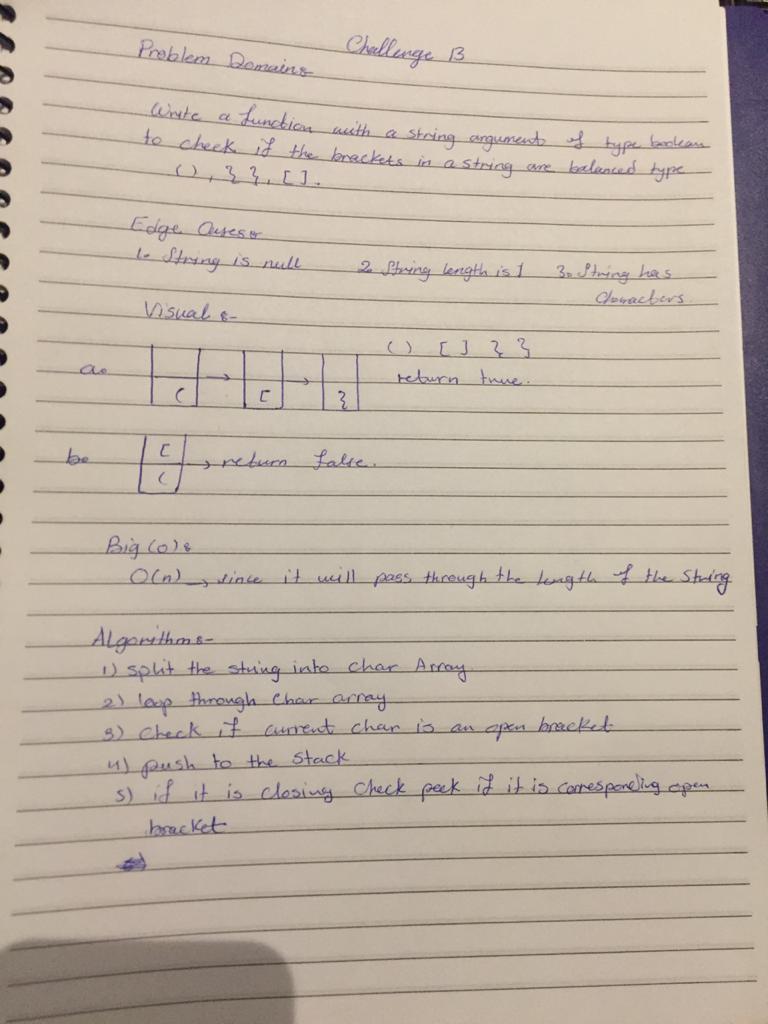 Challenge 13
Problem Domain:
Write a function with a string argument of type boolean
to check if the brackets in a string are balanced type
( ) , } } , [ ] .
Edge Cases:
1. String is null 2. String length is 1 3. String has
characters
Visual :-
( ) [ ] } }
a. ( → [ → }
return true.
b. [
( → return false.
Big (O) :
O(n) → since it will pass through the length of the string
Algorithm :-
1) split the string into char Array
2) loop through char array
3) check if current char is an open bracket
4) push to the stack
5) if it is closing check peek if it is corresponding open
bracket